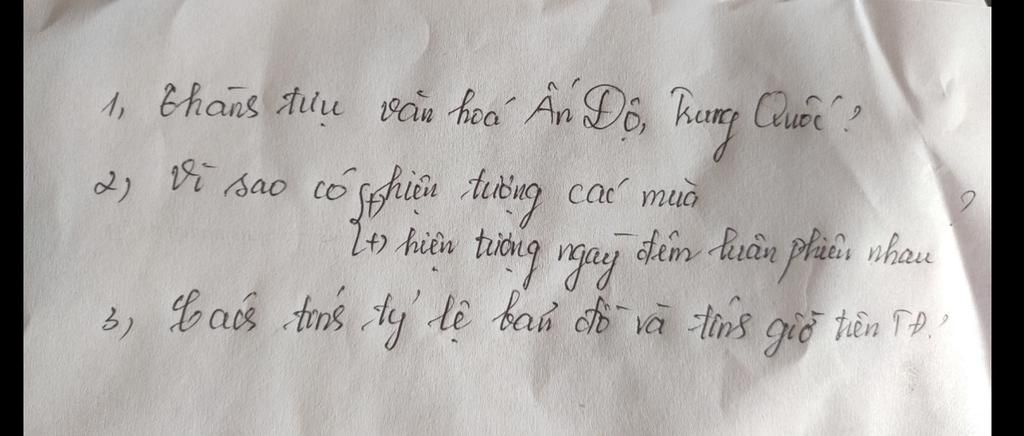 1, Thành tựu văn hoá Ấn Độ, Trung Quốc?
2) Vì sao có (+) hiện tượng các mùa
(+) hiện tượng ngày đêm luân phiên nhau ?
3) Cách tính tỷ lệ bản đồ và tính giờ trên TĐ?